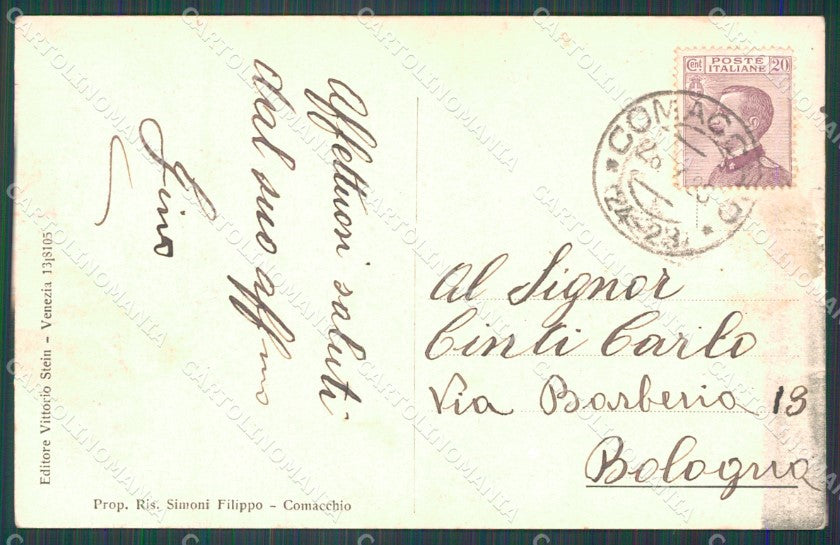 Affettuosi saluti
dal suo aff.mo
Gino
Editore Vittorio Stein - Venezia 13|8105
Prop. Ris. Simoni Filippo - Comacchio
Cent POSTE ITALIANE 20
COMACC
21-23
Al Signor
Cinti Carlo
Via Barberia 13
Bologna
CARTOLINOMANIA